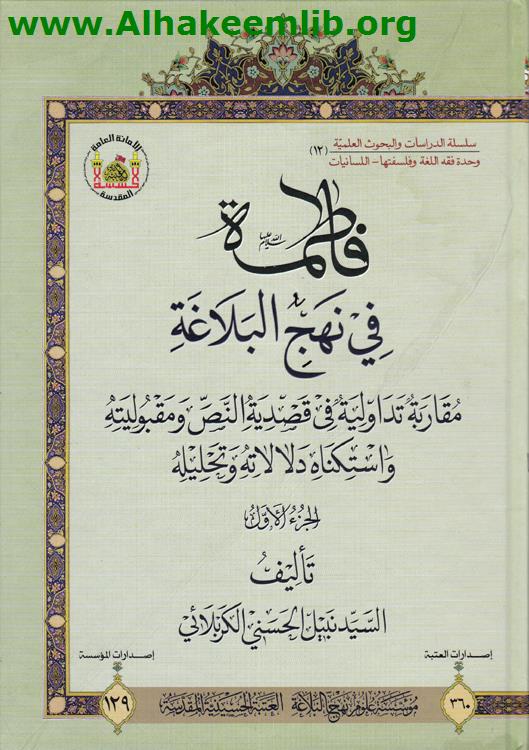 www.Alhakeemlib.org
سلسلة الدراسات والبحوث العلمية (١٢)
وحدة فقه اللغة وفلسفتها - اللسانيات
الأمانة العامة
المقدسة
فاطمة عليها السلام
فِي نَهْجِ البَلَاغَةِ
مُقَارَبَةٌ تَدَاوُلِيَةٌ فِي قَصْدِيَةِ النَّصِّ وَمَقْبُولِيَتِهِ
وَاسْتِكْنَاهِ دَلَالَاتِهِ وَتَحْلِيلِهِ
الجزءُ الأَوَّلُ
تَأليفُ
السَيّد نبيل الحَسَني الكَربَلائي
إصدارات العتبة
٣٦٠
إصدارات المؤسسة
١٢٩
مؤسسة علوم نهج البلاغة العتبة الحسينية المقدسة